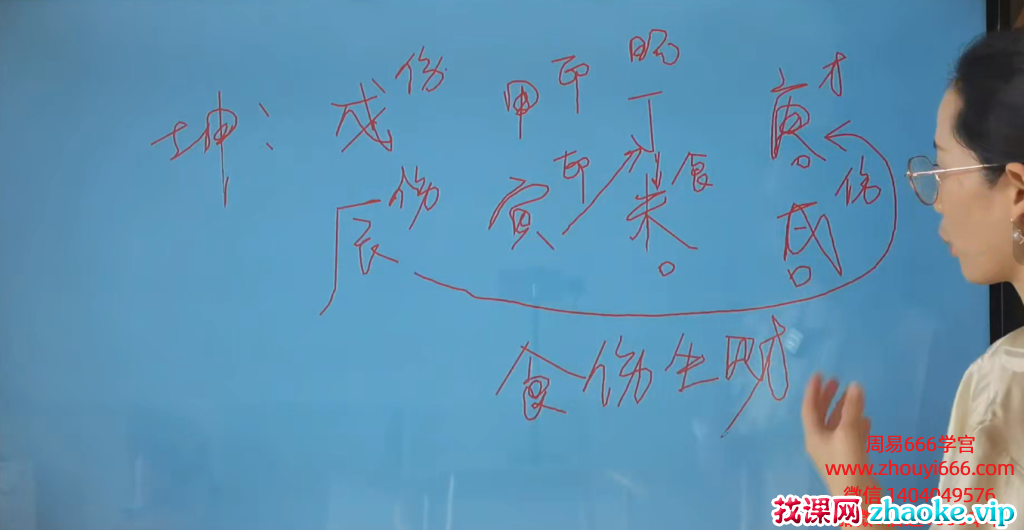 伤 印 阳 才
坤: 戊 甲 丁 庚
伤 印 食 伤
辰 寅 未 戌
食伤生财
周易666学宫
www.zhouyi666.com
微信 1404049576
找课网 zhaoke.vip